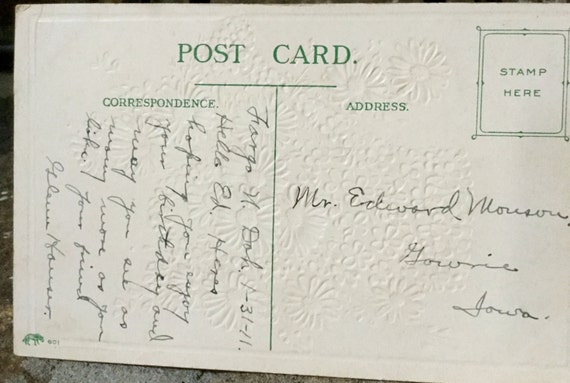 POST CARD.
CORRESPONDENCE.
ADDRESS.
STAMP
HERE
Fargo N. Dak. 1-31-11.
Hello Ed. Heres
hoping you enjoy
your birthday and
may you see as
many more as you
like, your friend
Glenn
Mr. Edward Monson
Gowrie
Iowa.
601